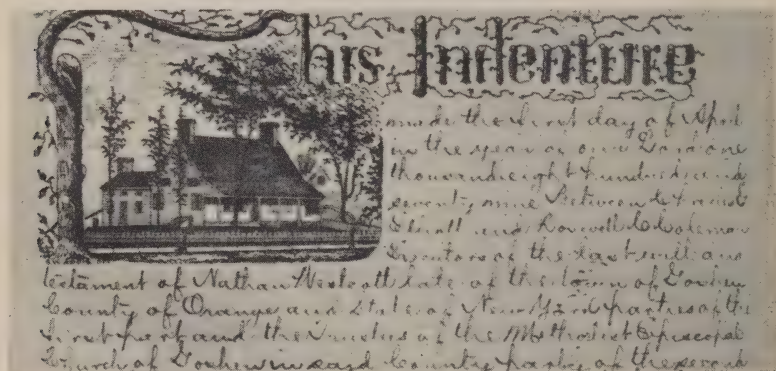 This Indenture
made the first day of April
in the year of our Lord one
thousand eight hundred and
seventy nine Between
and Roswell C Coleman
Executors of the last will and
testament of Nathan Westcott late of the town of Goshen
County of Orange and State of New York parties of the
first part and the Trustees of the Methodist Episcopal
Church of Goshen in said County party of the second